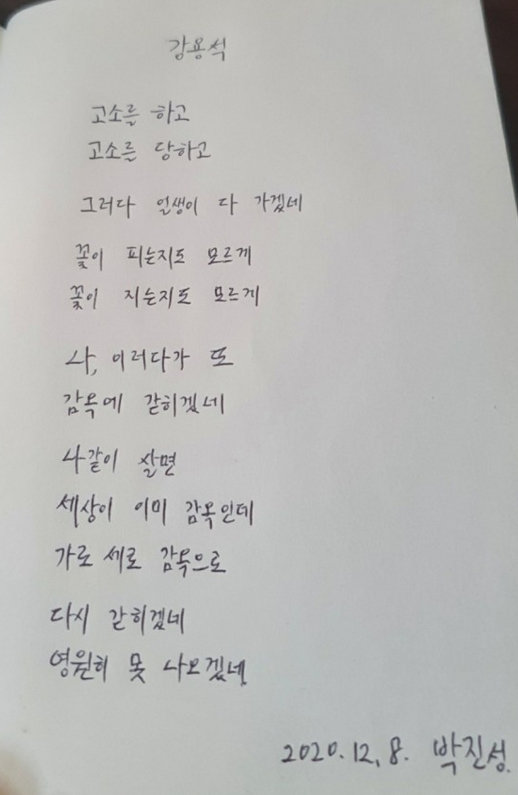 강용석
고소를 하고
고소를 당하고
그러다 일생이 다 가겠네
꽃이 피는지도 모르게
꽃이 지는지도 모르게
나, 이러다가 또
감옥에 갇히겠네
나같이 살면
세상이 이미 감옥인데
가로 세로 감옥으로
다시 갇히겠네
영원히 못 나오겠네.
2020. 12. 8. 박진성.